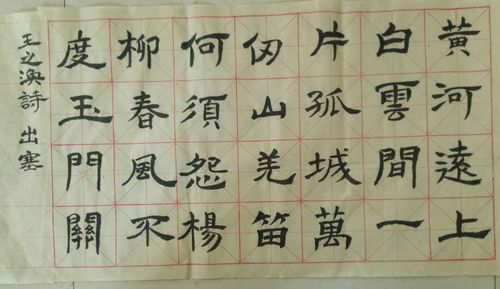 黄河遠上
白雲間一
片孤城萬
仞山羌笛
何須怨楊
柳春風不
度玉門關
王之渙詩 出塞